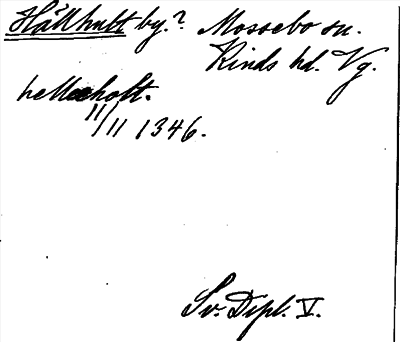 Hällhult by.? Mossebo sn.
Kinds hd. Vg.
helleholt.
11/11 1346.
Sv. Dipl. V.